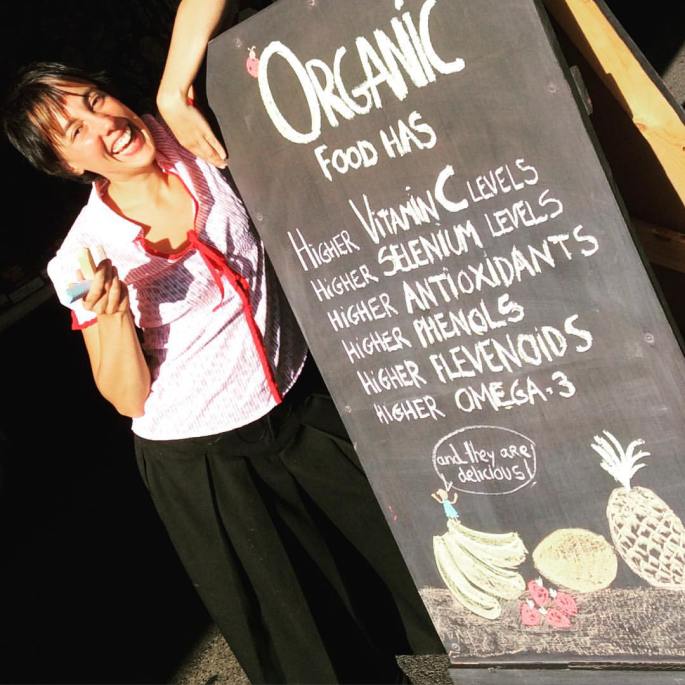 ORGANIC
FOOD HAS
HIGHER VITAMIN C LEVELS
HIGHER SELENIUM LEVELS
HIGHER ANTIOXIDANTS
HIGHER PHENOLS
HIGHER FLEVENOIDS
HIGHER OMEGA-3
and they are
delicious!